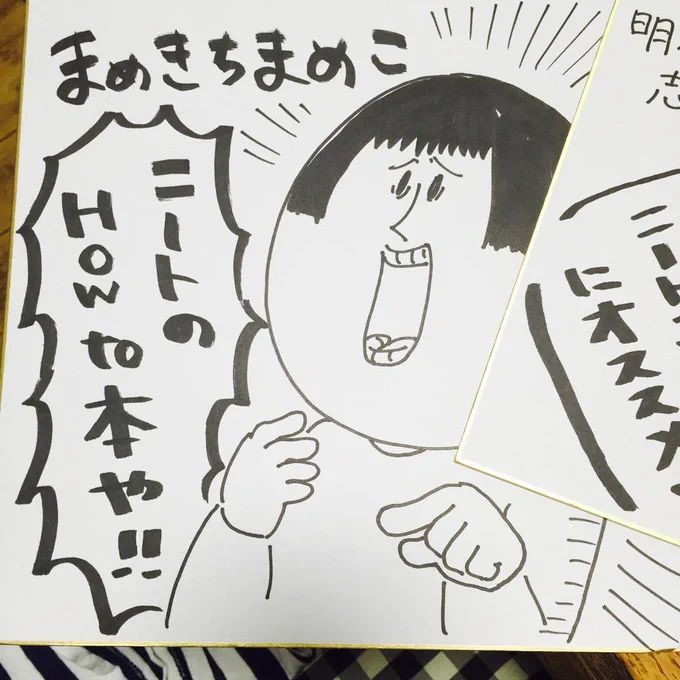 まめきちまめこ
ニートの
How to本や!!
明
ニート
にオススメ